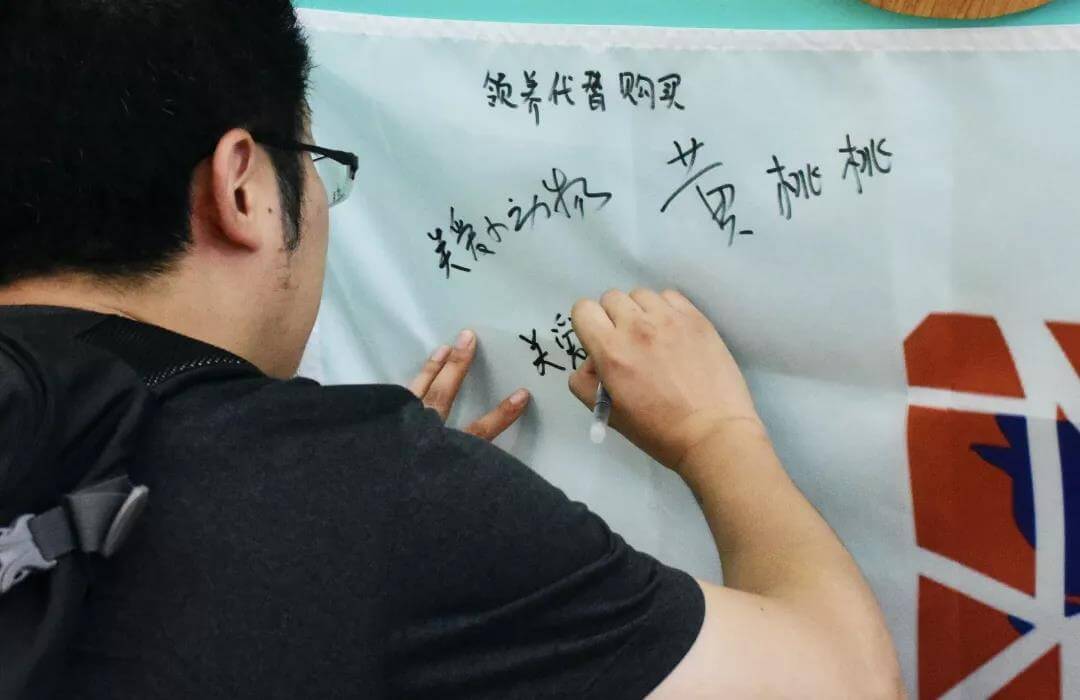 领养代替购买
关爱小动物 黄桃桃
关爱